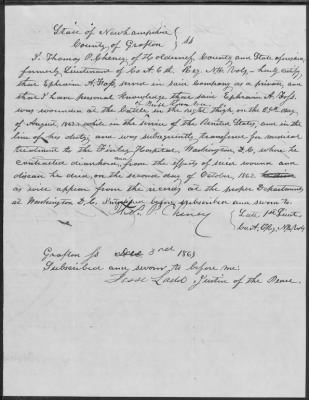 State of Newhampshire
County of Grafton } ss
I. Thomas P. Cheney, of Holderness, County and State aforesaid,
formerly Lieutenant of Co A. 6th Reg. N.H. Vols – hereby certify,
that Ephraim A. Foss, served in said Company as a private, and
that I have personal knowledge that said Ephraim A. Foss.
was wounded at the battle, in the right thigh, on the 29th day,
of August, 1862. while in the service of the United States, and in the
line of his duty, and was subsequently transferred for medical
treatment to the Finley Hospital, Washington D.C. where he
contracted diarrhoea, and from the effects of said wound and
disease he died, on the second day of October, 1862.
as will appear from the records at the proper Departments
at Washington D.C.
P. Cheney { Late 1st Lieut
Co A, 6 Reg, N.H. Vols
Grafton ss 3rd 1863
Subscribed and sworn to before me.
Jesse Ladd Justice of the Peace.